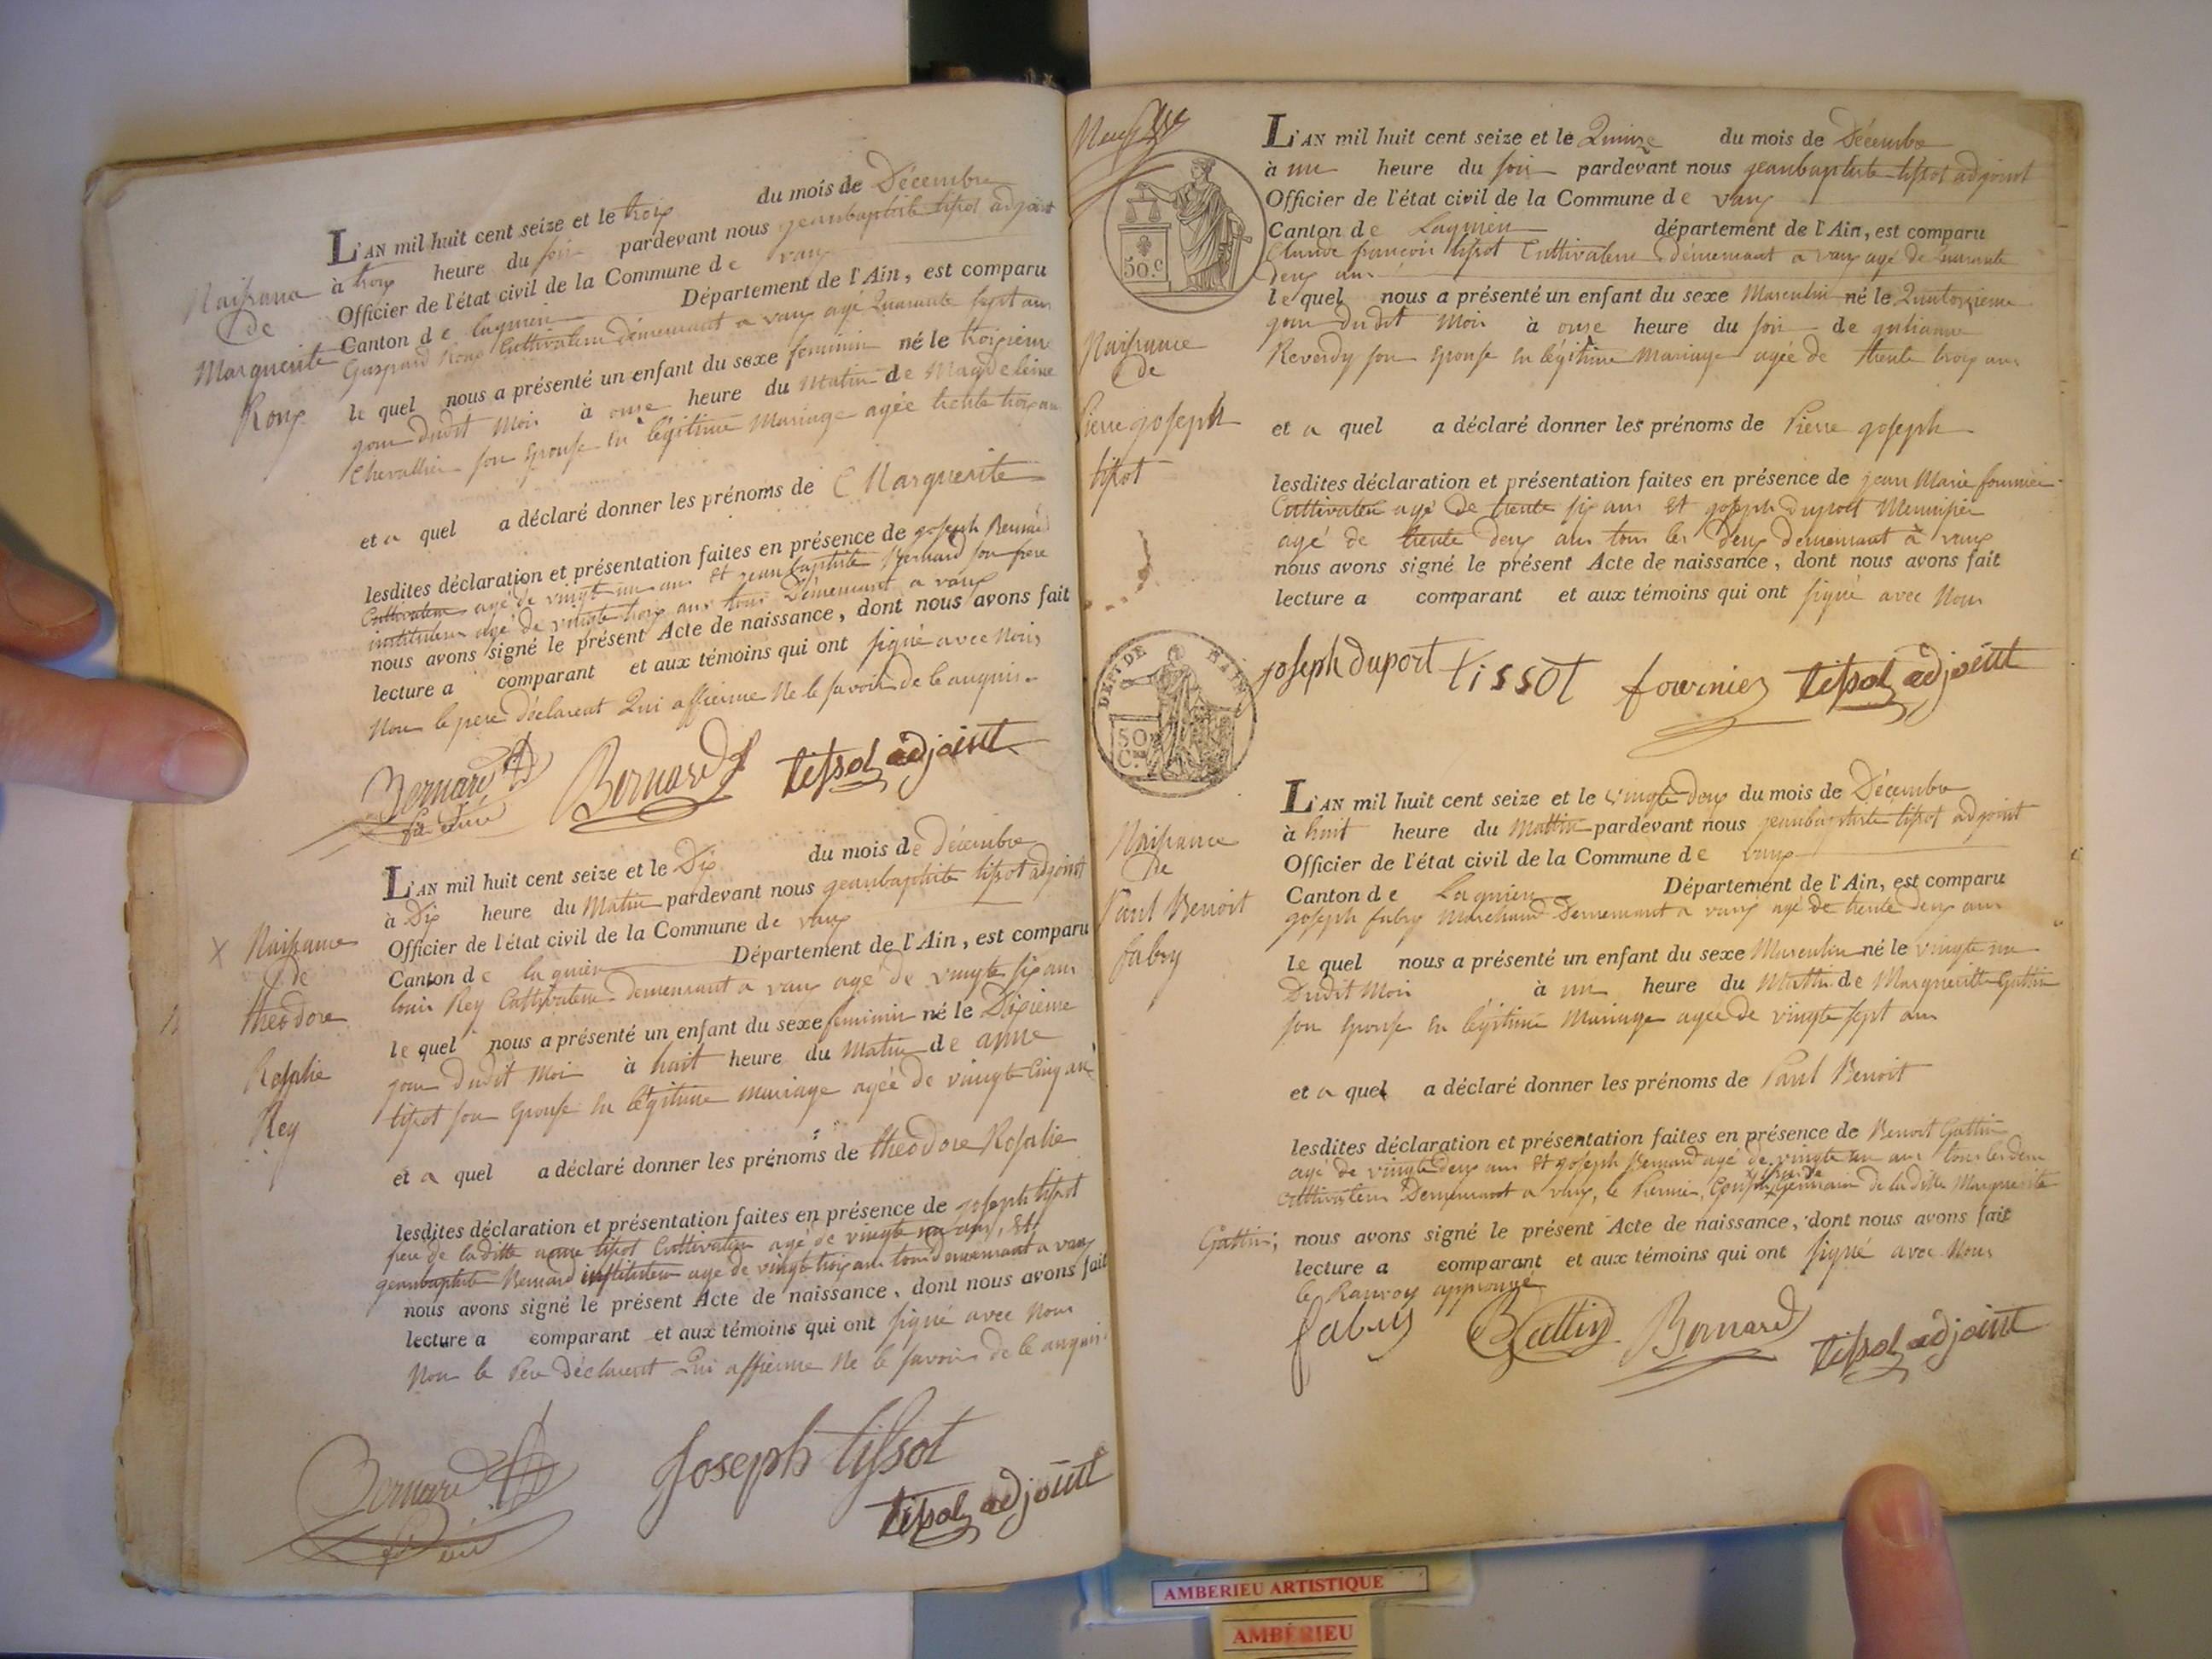 Naissance
de
Marguerite
Roux
L'AN mil huit cent seize et le trois du mois de Décembre
à trois heure du soir pardevant nous jeanbaptiste tissot adjoint
Officier de l'état civil de la Commune de vaux
Canton de lagnieu Département de l'Ain, est comparu
Gaspard Roux Cultivateur demeurant a vaux agé Quarante sept ans
le quel nous a présenté un enfant du sexe feminin né le troisieme
jour dudit Mois à onse heure du Matin de Magdeleine
Chevallier son epouse en légitime Mariage agée trente trois ans
et a quel a déclaré donner les prénoms de Marguerite
lesdites déclaration et présentation faites en présence de joseph Bernard
Cultivateur agé de vingt un ans Et jeanbaptiste Bernard son frere
instituteur agé de vingte trois ans tous Demeurant a vaux
nous avons signé le présent Acte de naissance, dont nous avons fait
lecture a comparant et aux témoins qui ont signé avec Nous
Non le pere déclarent Qui affirme Ne le savoir de ce anquis
Bernard
Bernard tissot adjoint
X Naissance
de
théodore
Rosalie
Rey
L'AN mil huit cent seize et le Dix du mois de Décembre
à Dix heure du Matin pardevant nous jeanbaptiste tissot adjoint
Officier de l'état civil de la Commune de vaux
Canton de lagnieu Département de l'Ain, est comparu
louis Rey Cultivateur demeurant a vaux agé de vingte six ans
le quel nous a présenté un enfant du sexe feminin né le Dixieme
jour dudit Mois à huit heure du Matin de anne
tissot son epouse en légitime mariage agée de vingte cinq ans
et a quel a déclaré donner les prénoms de théodore Rosalie
lesdites déclaration et présentation faites en présence de joseph tissot
frere de laditte anne tissot Cultivateur agé de vingte un ans, Et
jeanbaptiste Bernard instituteur agé de vingt trois ans tous demeurant a vaux
nous avons signé le présent Acte de naissance, dont nous avons fait
lecture a comparant et aux témoins qui ont signé avec Nous
Non le Pere déclarent Qui affirme Ne le savoir de ce anquis
Bernard
Joseph tissot
tissot adjoint
50.c
Naissance
de
Pierre joseph
tissot
L'AN mil huit cent seize et le Quinze du mois de Décembre
à une heure du soir pardevant nous jeanbaptiste tissot adjoint
Officier de l'état civil de la Commune de vaux
Canton de Lagnieu département de l'Ain, est comparu
Claude françois tissot Cultivateur démeurant a vaux agé de Quarante
deux ans
le quel nous a présenté un enfant du sexe Masculin né le Quatorzieme
jour dudit Mois à onse heure du soir de julianne
Reverdy son epouse en légitime Mariage agée de trente trois ans
et a quel a déclaré donner les prénoms de Pierre joseph
lesdites déclaration et présentation faites en présence de jean Marie fournier
Cultivateur agé de trente six ans Et joseph duport Menuisier
agé de trente deux ans tous les deux demeurant à vaux
nous avons signé le présent Acte de naissance, dont nous avons fait
lecture a comparant et aux témoins qui ont signé avec Nous
DEPT DE L'AIN
50
CES
joseph duport tissot fournier tissot adjoint
Naissance
de
Paul Benoit
fabry
L'AN mil huit cent seize et le vingte deux du mois de Décembre
à huit heure du Mattin pardevant nous jeanbaptiste tissot adjoint
Officier de l'état civil de la Commune de vaux
Canton de Lagnieu Département de l'Ain, est comparu
joseph fabry Marchand Demeurant a vaux agé de trente deux ans
le quel nous a présenté un enfant du sexe Masculin né le vingte un
Dudit Mois à une heure du Mattin de Margueritte Gattin
son epouse en légitime Mariage agée de vingte sept ans
et a quel a déclaré donner les prénoms de Paul Benoit
lesdites déclaration et présentation faites en présence de Benoit Gattin
agé de vingte deux ans Et joseph Bernard agé de vingte un ans tous les deux
cultivateurs Demeurant a vaux, le Premier, Cousin Germain de laditte Marguerite
Gattin; nous avons signé le présent Acte de naissance, dont nous avons fait
lecture a comparant et aux témoins qui ont signé avec Nous
le Ranvoy approuvé
fabry BGattin Bernard tissot adjoint
AMBERIEU ARTISTIQUE
AMBÉRIEU